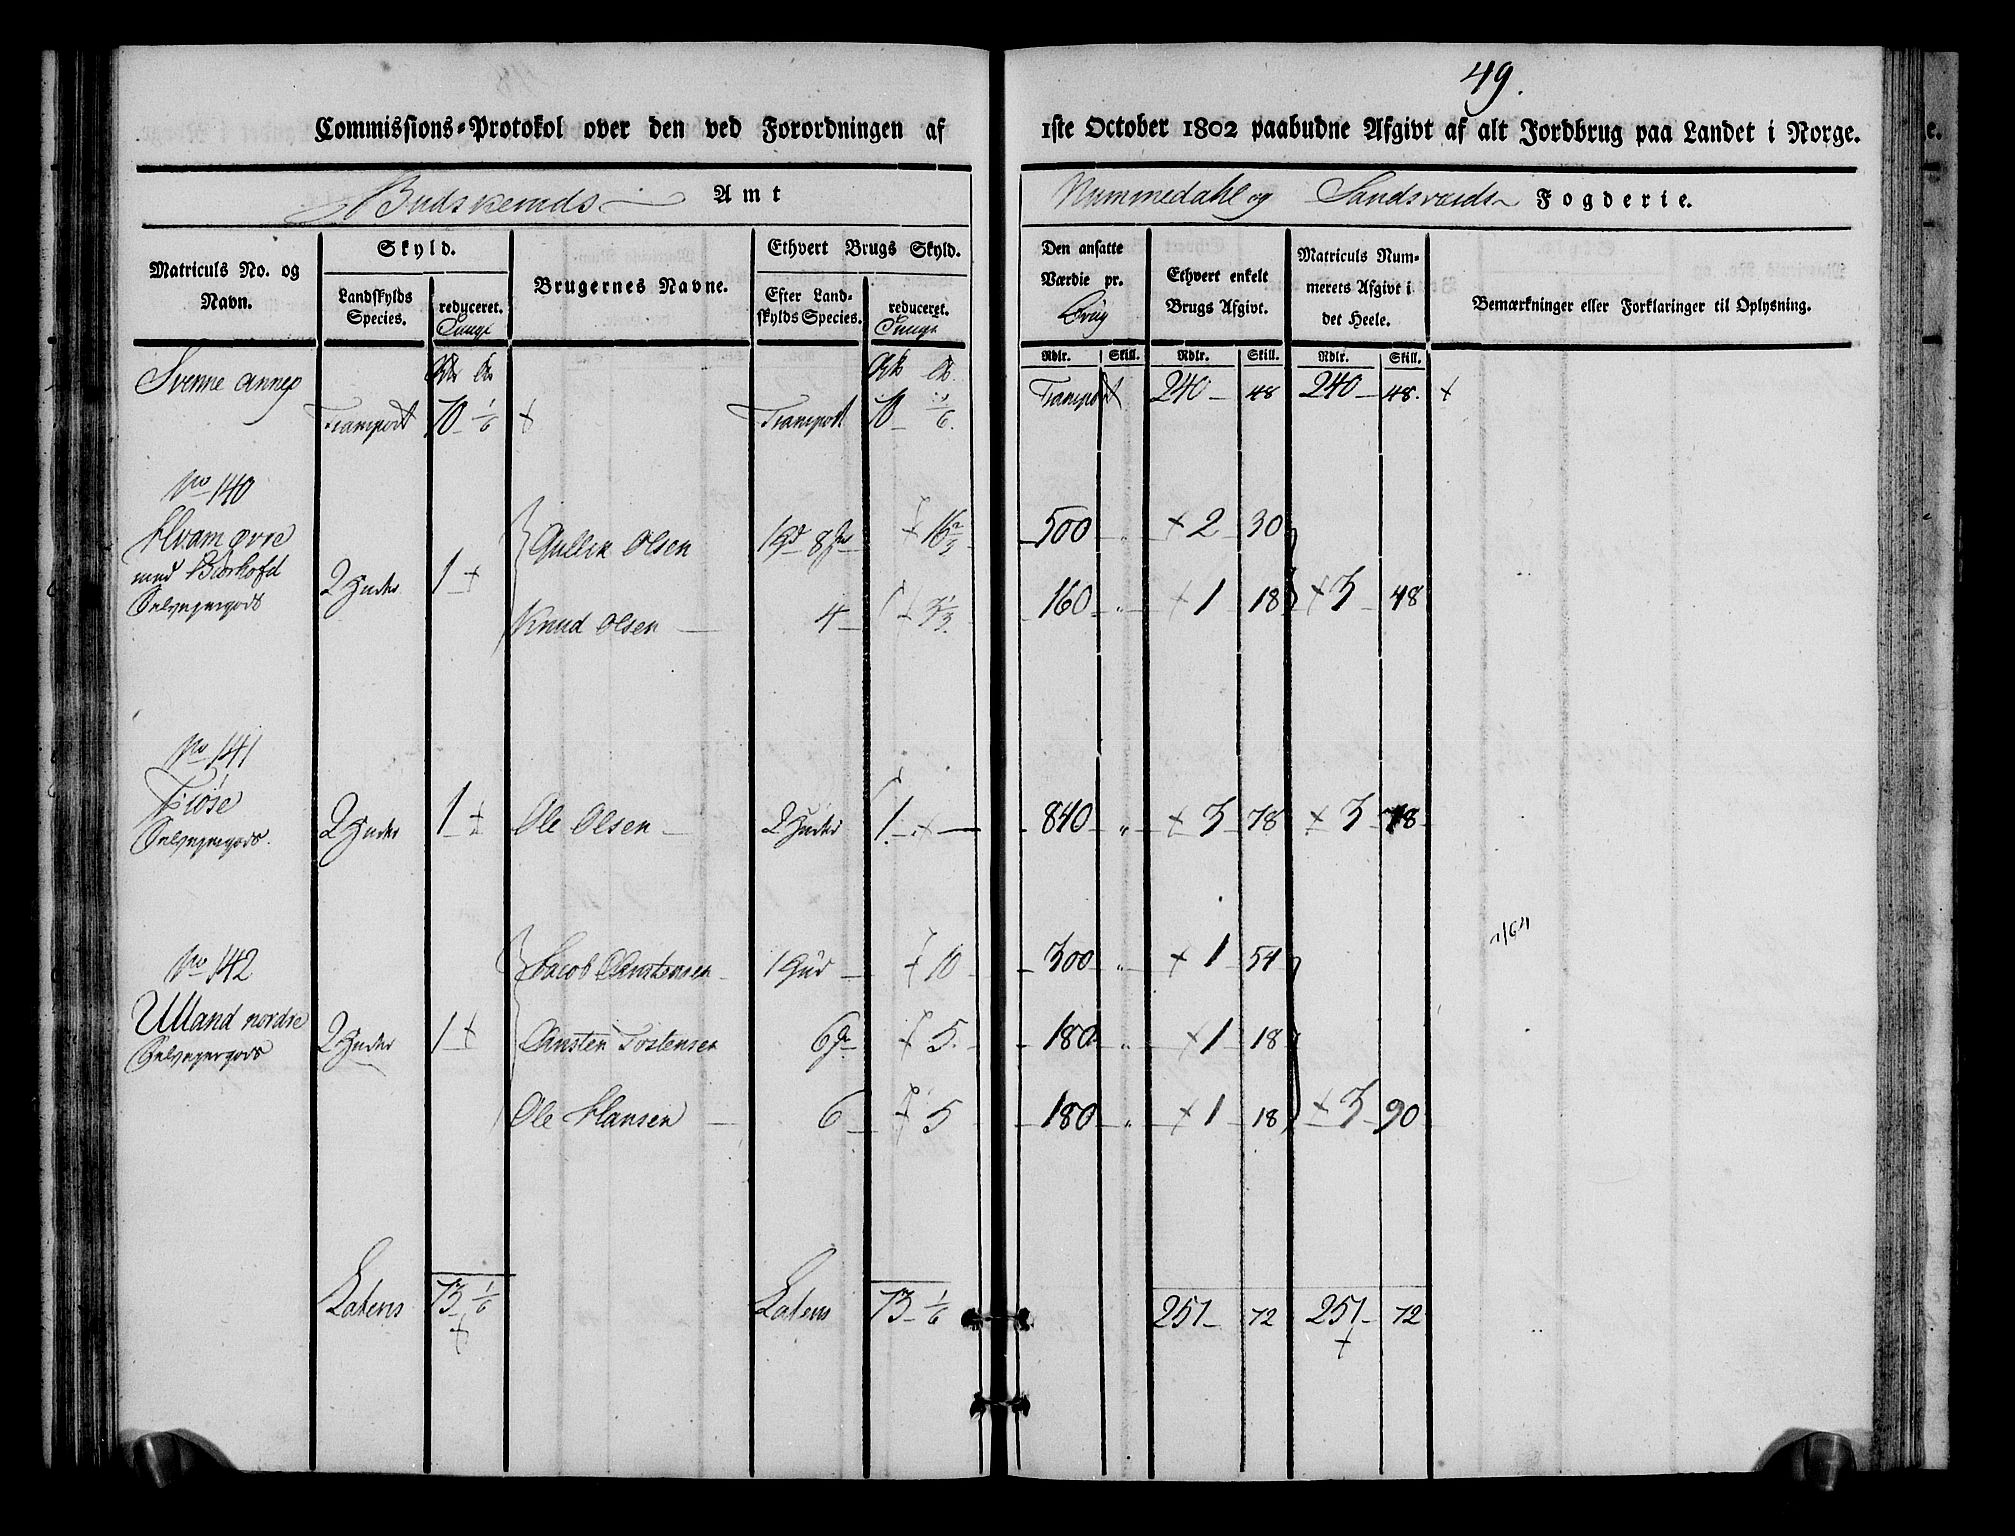 49.
Commissions-Protokol over den ved Forordningen af 1ste October 1802 paabudne Afgivt af alt Jordbrug paa Landet i Norge.
Budskeruds Amt Nummedahl og Sandsværds Fogderie.
Matriculs No. og Navn.
Skyld.
Landskylds Species.
reduceret. Tunge
Brugernes Navne.
Ethvert Brugs Skyld.
Efter Landskylds Species.
reduceret. Tunge
Den ansatte Værdie pr. Brug
Ethvert enkelt Brugs Afgivt.
Matriculs Nummerets Afgivt i det Heele.
Bemærkninger eller Forklaringer til Oplysning.
Rdlr. Skill. Rdlr. Skill. Rdlr. Skill.
Svenne annex
Transport 70 1/6 + Transport 70 1/6 Transport 240 48 240 48. +
No 140
Hvam øvre 2 Huder 1 + Gullik Olsen 1 Hd 8 + 16 2/3 500 " + 2 30
med Biørhofd
Selveyergods Knud Olsen 4 + 3 1/3 160 " + 1 18 + 3 48
No 141
Fiøse
Selveyergods. 2 Huder 1 + Ole Olsen 2 Huder 1 + 840 " + 3 78 + 3 78
No 142 Jacob Anstensen 1 Hud + 10 300 " + 1 54
Ulland nordre 2 Huder 1 + Ansten Tostensen 6 + 5 180 " + 1 18
Selveyergods
Ole Hansen 6 + 5 180 " + 1 18 + 3 90
Latens 73 1/6 + Latens 73 1/6 251 72 251 72 +